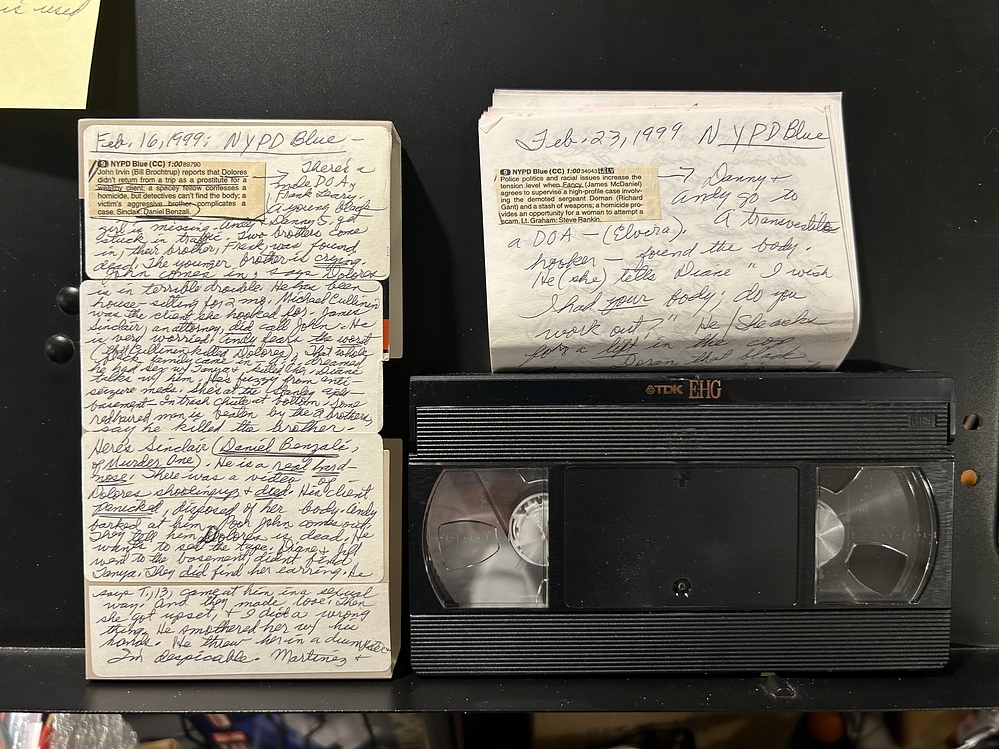 is used
Feb. 16, 1999: NYPD Blue -
NYPD Blue (CC) 1:00 89790
John Irvin (Bill Brochtrup) reports that Dolores
didn't return from a trip as a prostitute for a
wealthy client; a spacey fellow confesses a
homicide, but detectives can't find the body; a
victim's aggressive brother complicates a
case. Sinclair: Daniel Benzali.
There's a
male DOA,
Frank
A young black
girl is missing. Andy + Danny get
stuck in traffic. Two brothers come
in, their brother, Frank was found
dead. The younger brother is crying.
John comes in, says Dolores
is in terrible trouble. He has been
house-sitting for 2 mo. Michael Cullinen
was the client she hooked for. James
Sinclair, an attorney, did call John. He
is very worried! Andy fears the worst
(that Cullinen killed Dolores). That
family came in
he had sex w/ Tanya + killed her. Diane
talks w/ him. He's fuzzy from anti-
seizure meds. She's at the
basement. In trash chute at bottom. Some
redhaired man is beaten by the 2 brothers,
say he killed the brother.
Here's Sinclair (Daniel Benzali,
of Murder One). He is a real hard-
nose. There was a video of
Dolores shooting up + died. His client
panicked, disposed of her body. Andy
barked at him. Poor John comes out,
They tell him Dolores is dead. He
wants to see the tape. Diane + Jill
went to the basement, didn't find
Tanya. They did find her earring. He
says T., 13, came at him in a sexual
way. And they made love. Then
she got upset, + I did a wrong
thing. He smothered her w/ his
hands. He threw her in a dumpster
I'm despicable. Martinez +
Feb. 23, 1999 NYPD Blue
NYPD Blue (CC) 1:00 34043
Police politics and racial issues increase the
tension level when Fancy (James McDaniel)
agrees to supervise a high-profile case involv-
ing the demoted sergeant Dornan (Richard
Gant) and a stash of weapons; a homicide pro-
vides an opportunity for a woman to attempt a
scam. Lt. Graham: Steve Rankin.
Danny +
Andy go to
a DOA - (Elvira). A transvestite
hooker - found the body.
He (she) tells Diane "I wish
I had your body; do you
work out?" He/She asks
for a lift in the cop
that black
TDK EHG
VHS